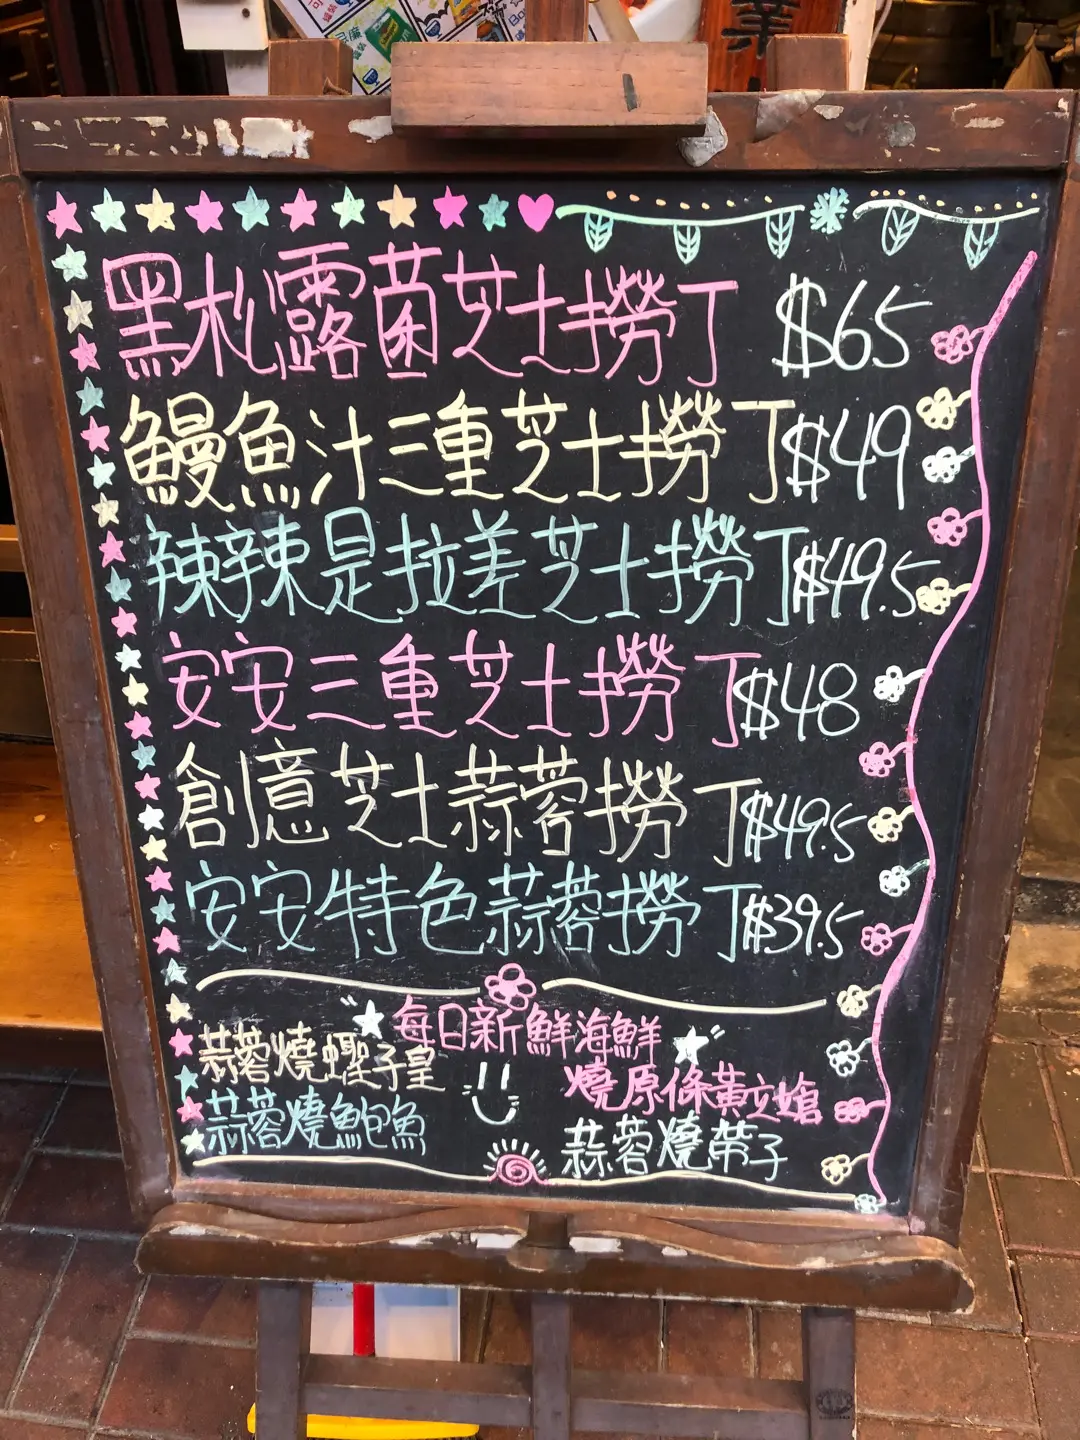 黑松露菌芝士撈丁 $65
鰻魚汁三重芝士撈丁 $49
辣辣是拉差芝士撈丁 $49.5
安安三重芝士撈丁 $48
創意芝士蒜蓉撈丁 $49.5
安安特色蒜蓉撈丁 $39.5
"每日新鮮海鮮"
蒜蓉燒蟶子皇
燒原條黃立鱠
蒜蓉燒鮑魚
蒜蓉燒帶子